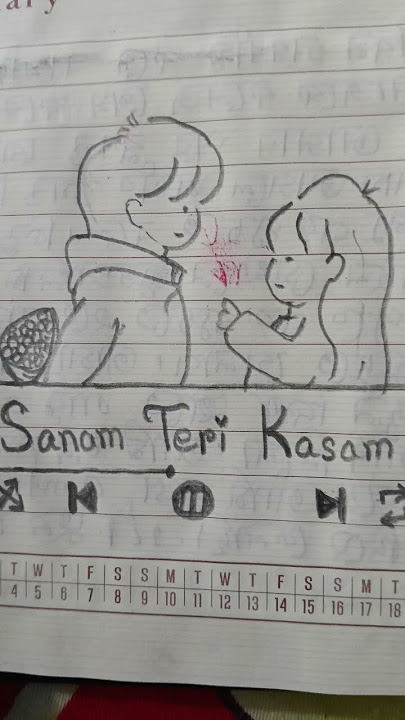 ary
Sanam Teri Kasam
T W T F S S M T W T F S S M T
4 5 6 7 8 9 10 11 12 13 14 15 16 17 18